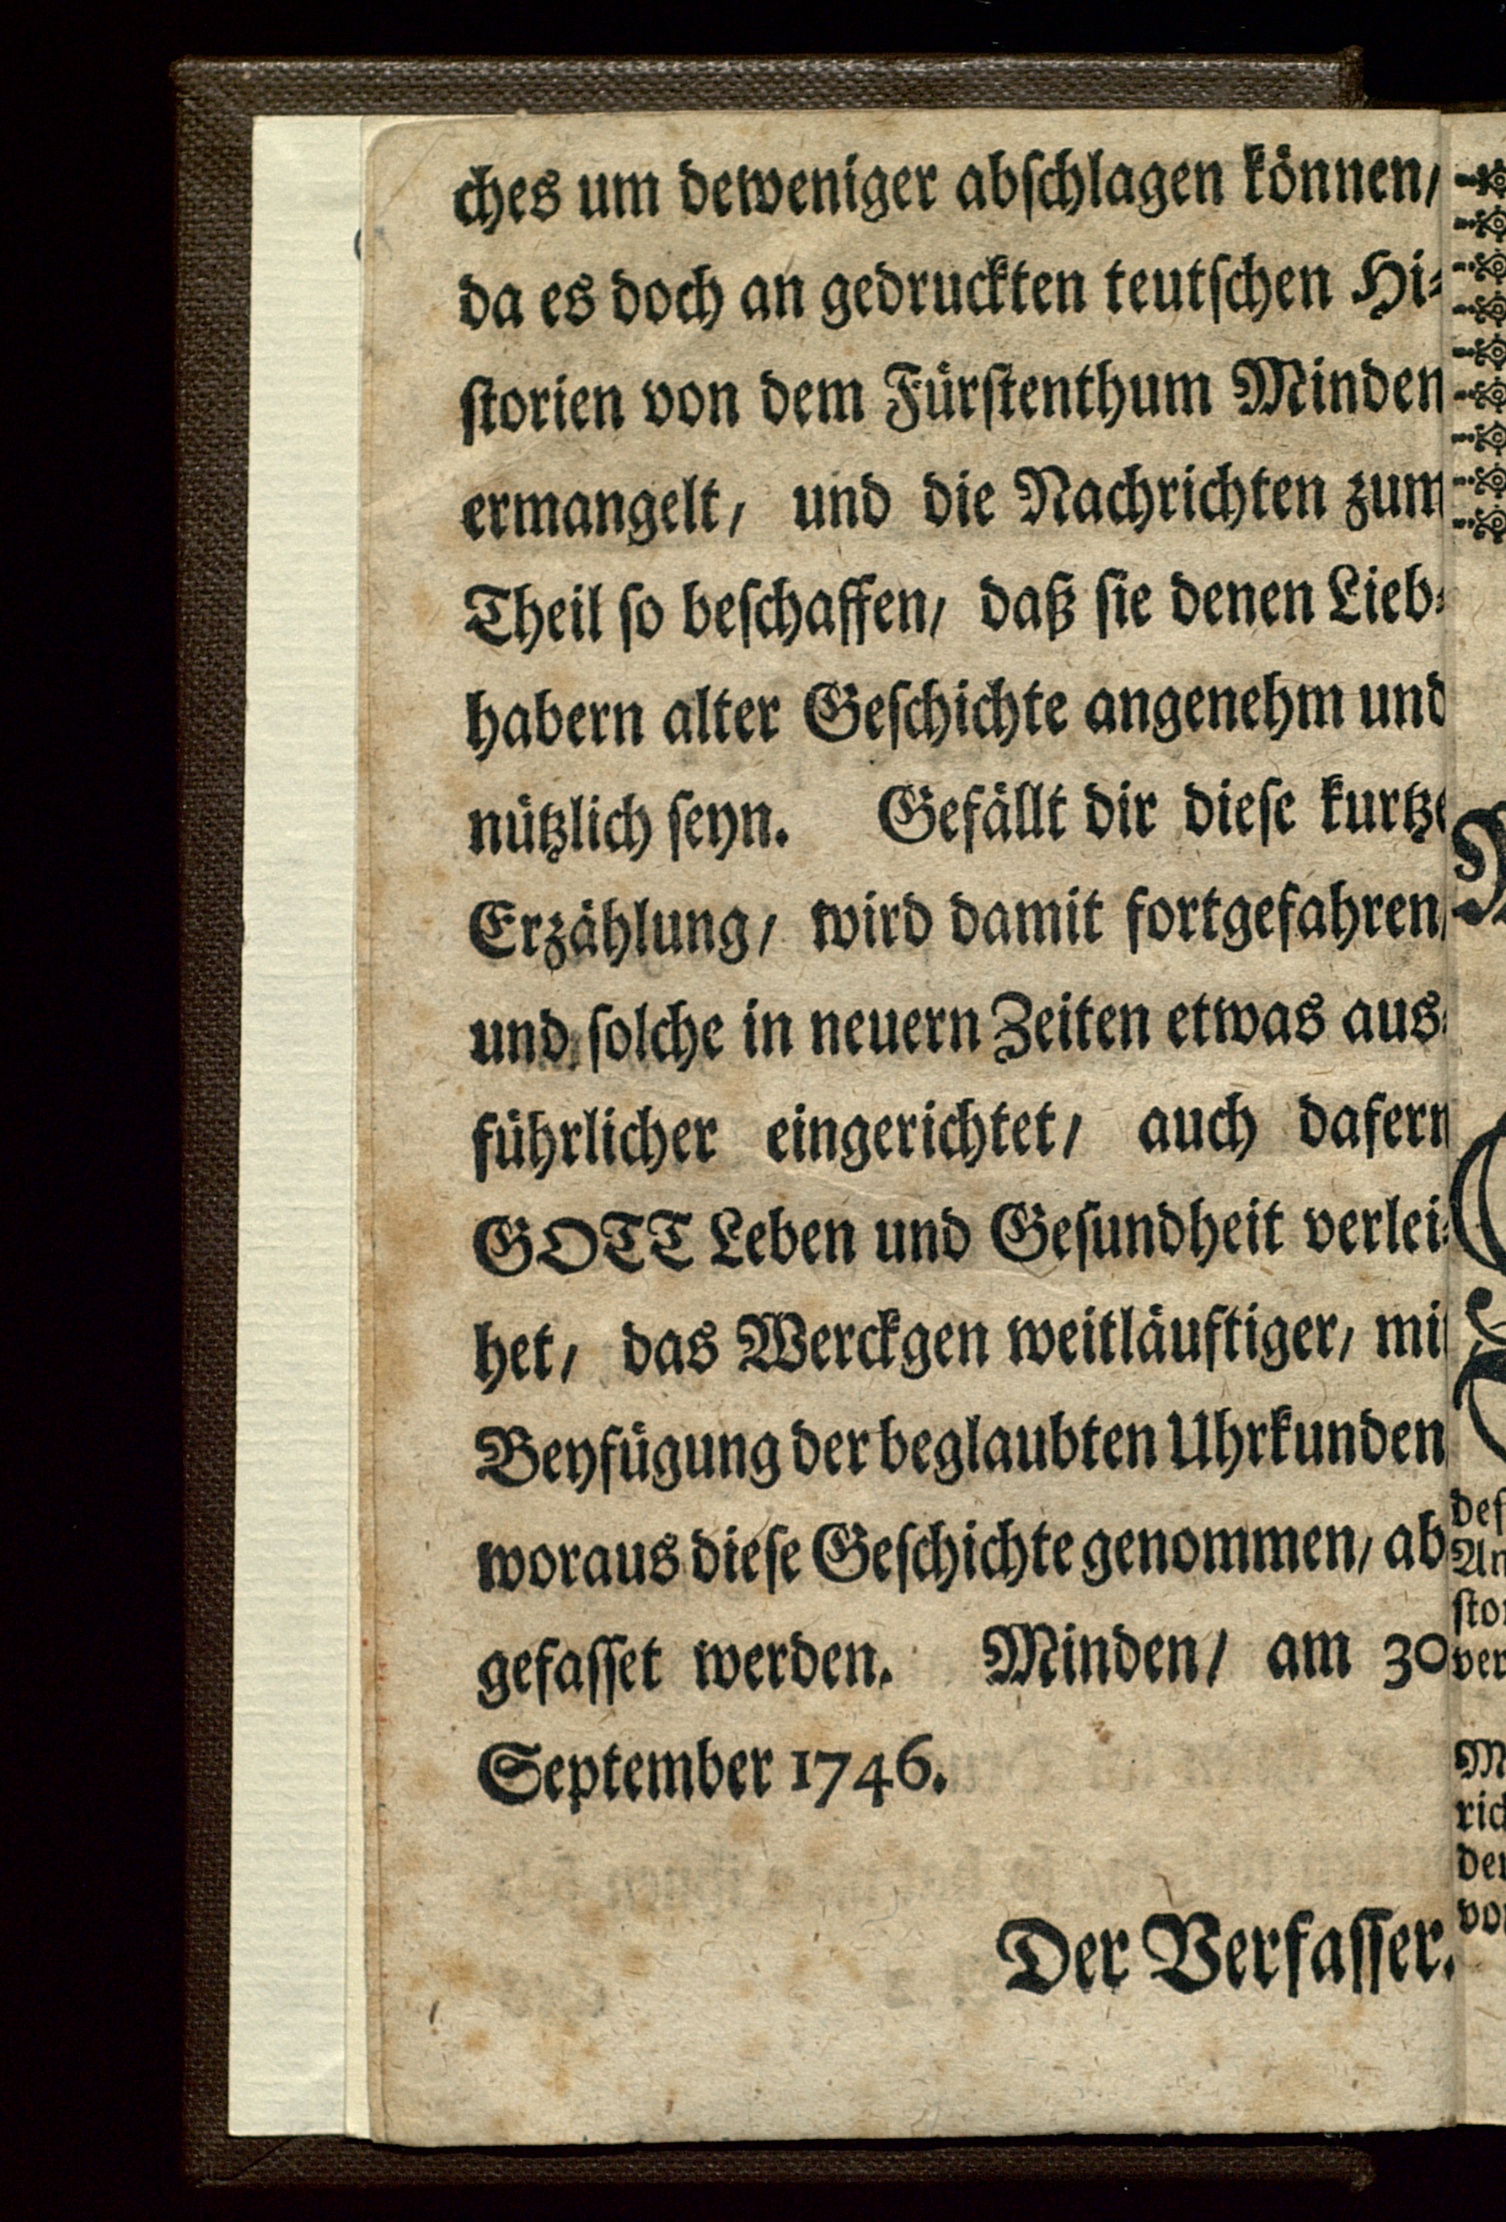 ches um deweniger abſchlagen können/
da es doch an gedruckten teutſchen Hi⸗
ſtorien von dem Fürſtenthum Minden
ermangelt/ und die Nachrichten zum
Theil ſo beſchaffen/ daß ſie denen Lieb⸗
habern alter Geſchichte angenehm und
nützlich ſeyn. Gefällt dir dieſe kurtze
Erzählung/ wird damit fortgefahren/
und ſolche in neuern Zeiten etwas aus⸗
führlicher eingerichtet/ auch dafern
GOTT Leben und Geſundheit verlei⸗
het/ das Werckgen weitläuftiger/ mi
Beyfügung der beglaubten Uhrkunden
woraus dieſe Geſchichte genommen/ ab
gefaſſet werden. Minden/ am 30
September 1746.
Der Verfaſſer.